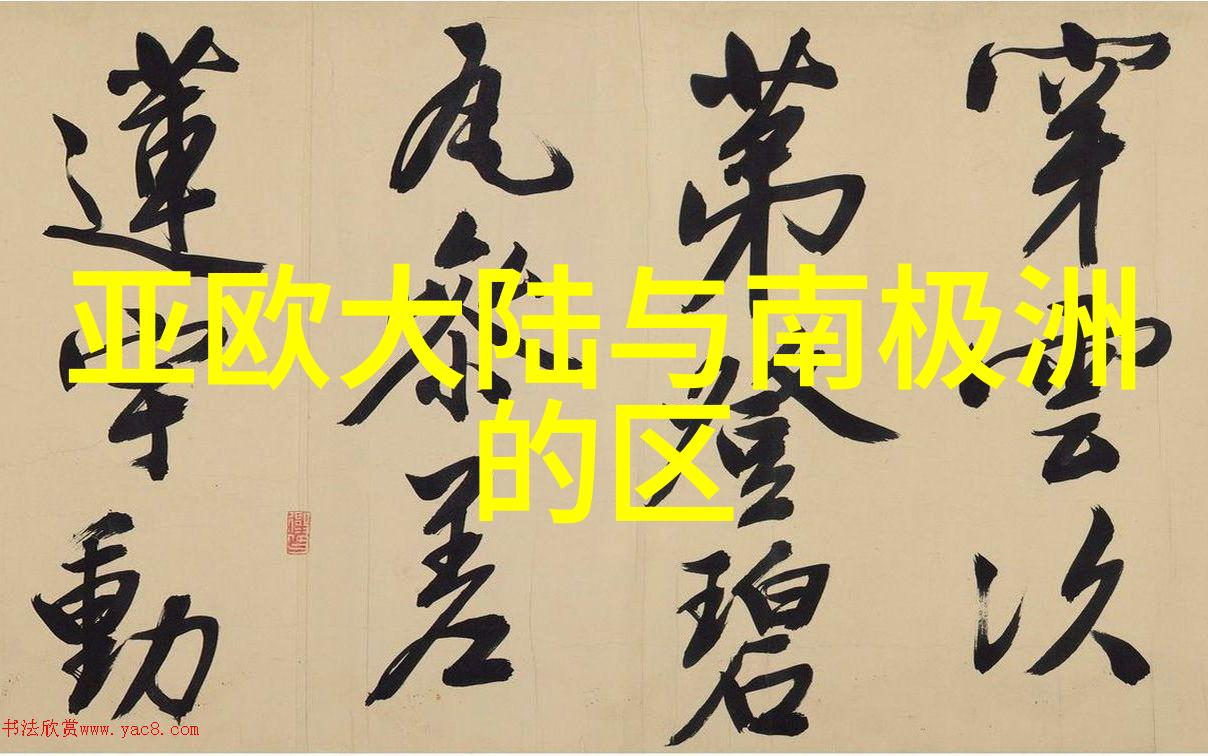 亚欧大陆与南极洲
的区
穿雲次
苐登碧
瓦參差
蓮宇動
书法欣赏www.yac8.com